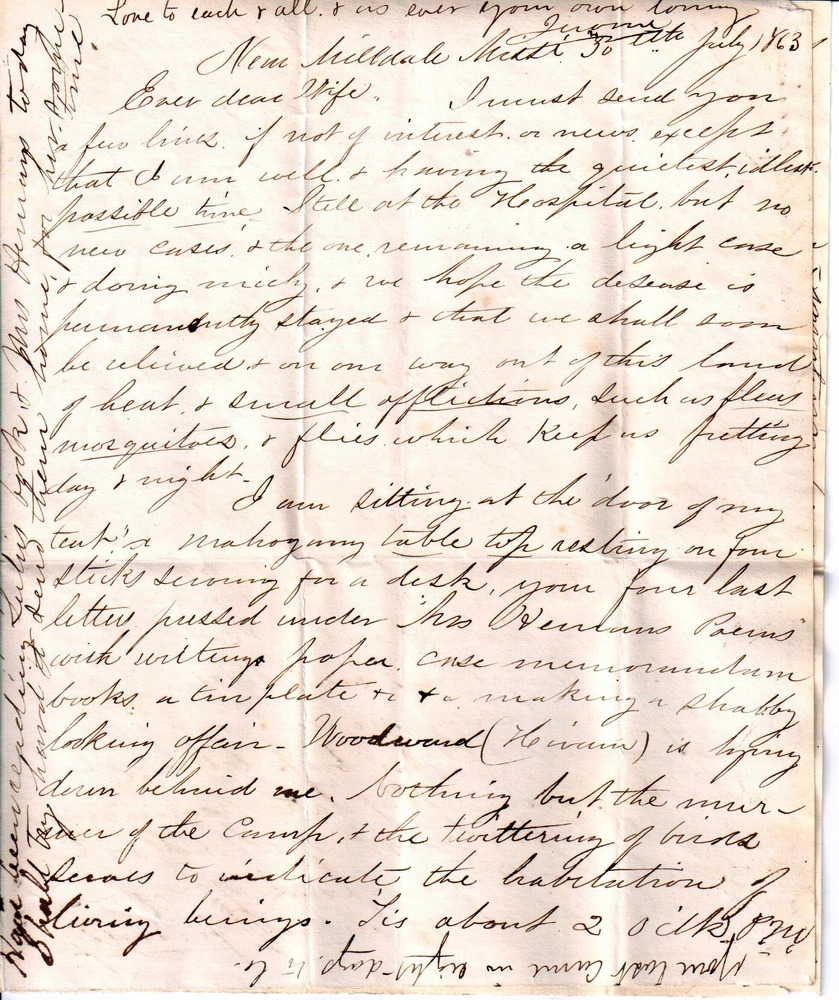 Love to each & all. & as ever your own loving
Jerome
Near Milldale Misst. 30th July 1863
Ever dear Wife. I must send you
a few lines. if not of interest or news except
that I am well. & having the quietest, idlest
possible time. Still at the Hospital. but no
new cases, & the one remaining a light case
& doing nicely, & we hope the desease is
permanently stayed & that we shall soon
be relieved & on our way out of this land
of heat. & small afflictions, such as fleas
mosquitoes, & flies. which keep us fretting
day & night-
I am sitting at the door of my
tent "a mahogany table top resting on four
sticks serving for a desk, your four last
letters pressed under "Mrs Hemans Poems"
with writing paper. case memorandum
books. a tin plate & c & c. making a shabby
looking affair - Woodward (Hiram) is lying
down behind me. Nothing but the mur-
mur of the Camp, & the twittering of birds
serves to indicate the habitation of
living beings. Tis about 2 O clk P M.
Your last came in eight days to
Have been reading book, & Mrs Hemans today
Shall try hard to send them home, for his some-
time